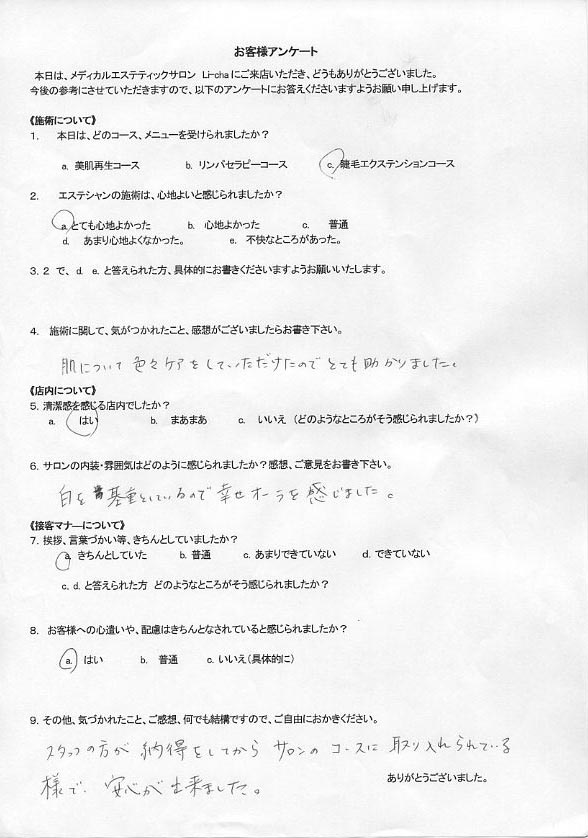 お客様アンケート
本日は、メディカルエステティックサロン Li-chaにご来店いただき、どうもありがとうございました。
今後の参考にさせていただきますので、以下のアンケートにお答えくださいますようお願い申し上げます。
《施術について》
1. 本日は、どのコース、メニューを受けられましたか?
a. 美肌再生コース b. リンパセラピーコース c. 睫毛エクステンションコース
2. エステシャンの施術は、心地よいと感じられましたか?
a. とても心地よかった b. 心地よかった c. 普通
d. あまり心地よくなかった。 e. 不快なところがあった。
3. 2 で、d e. と答えられた方、具体的にお書きくださいますようお願いいたします。
4. 施術に関して、気がつかれたこと、感想がございましたらお書き下さい。
肌について色々ケアをしていただけたのでとても助かりました。
《店内について》
5. 清潔感を感じる店内でしたか?
a. はい b. まあまあ c. いいえ (どのようなところがそう感じられましたか?)
6. サロンの内装・雰囲気はどのように感じられましたか?感想、ご意見をお書き下さい。
白を基重としているので幸せオーラを感じました。
《接客マナーについて》
7. 挨拶、言葉づかい等、きちんとしていましたか?
a. きちんとしていた b. 普通 c. あまりできていない d. できていない
c. d. と答えられた方 どのようなところがそう感じられましたか?
8. お客様への心遣いや、配慮はきちんとなされていると感じられましたか?
a. はい b. 普通 c. いいえ(具体的に)
9. その他、気づかれたこと、ご感想、何でも結構ですので、ご自由におかきください。
スタッフの方が 納得をしてから サロンの コースに 取り入れられている
様で、安心が出来ました。
ありがとうございました。